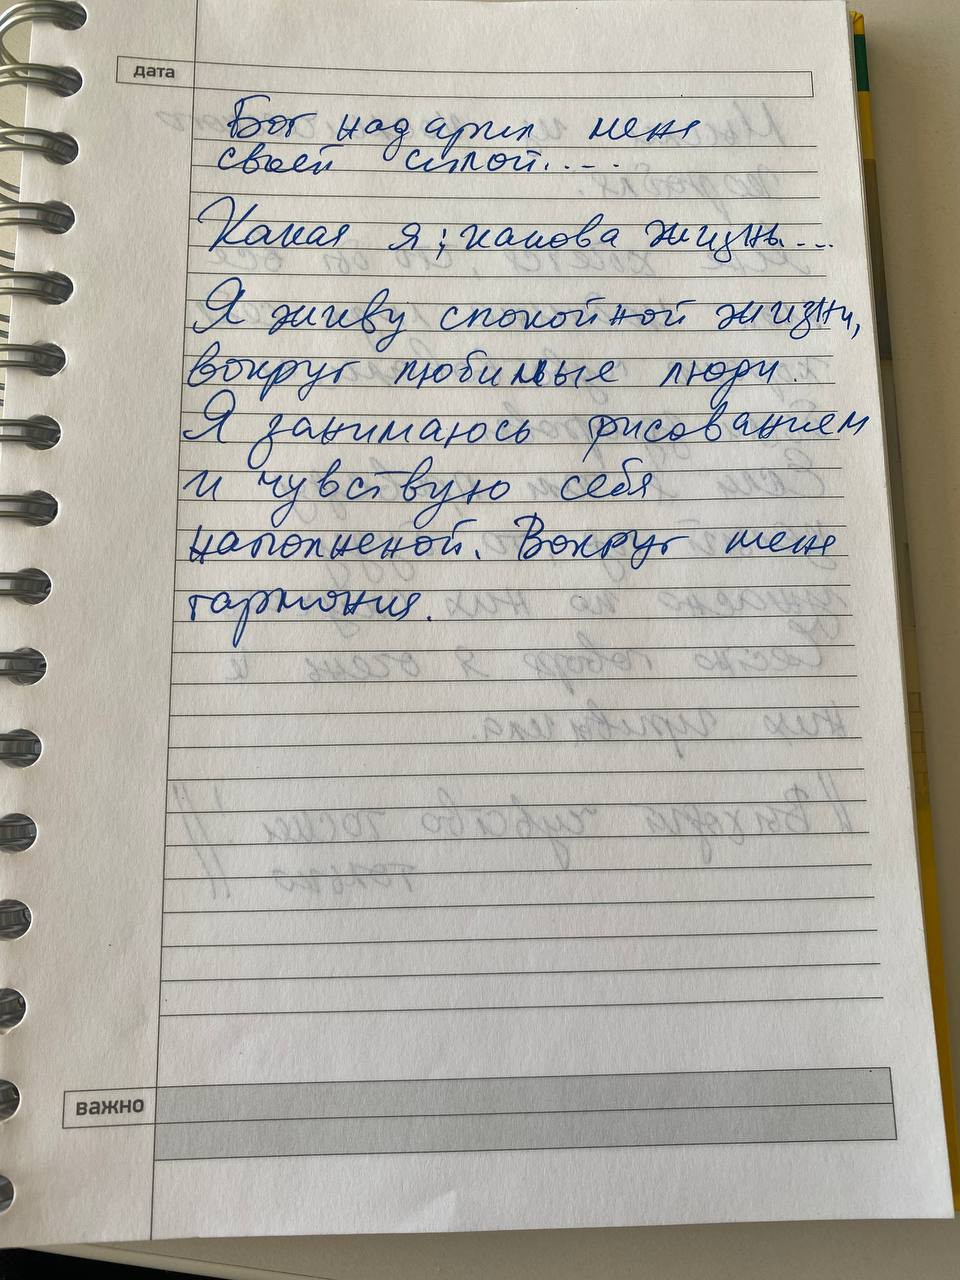 дата
Бог надарил меня
своей силой....
Какая я; какова жизнь...
Я живу спокойной жизни,
вокруг любимые люди.
Я занимаюсь рисованием
и чувствую себя
наполненой. Вокруг меня
гармония.
важно